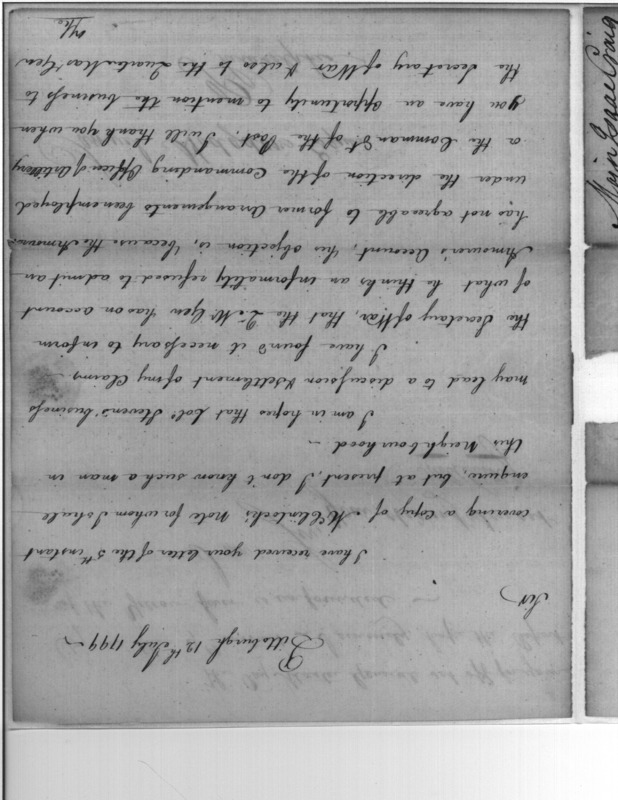 Pittsburgh 12th July 1799
Sir
I have received your letter of the 5th instant
covering a Copy of McClintock's note for whom I shall
enquire, but at present, I don't know such a man in
this Neighbourhood
I am in hopes that Colo Stevens's business
may lead to a discussion & settlement of my Claims
I have found it necessary to inform
the Secretary of War, that the Qr Mr Genl has on account
of what he thinks an informality refused to admit an
Armourer's account, his objection is, because the Armourer
has not agreeable to former arrangements been employed
under the direction of the Commanding Officer of Artillery
or the Command't of the Post, I will thank you when
you have an opportunity to mention the business to
the Secretary of War & also to the Quarter Mas' Gen
The
Major Isaac Craig